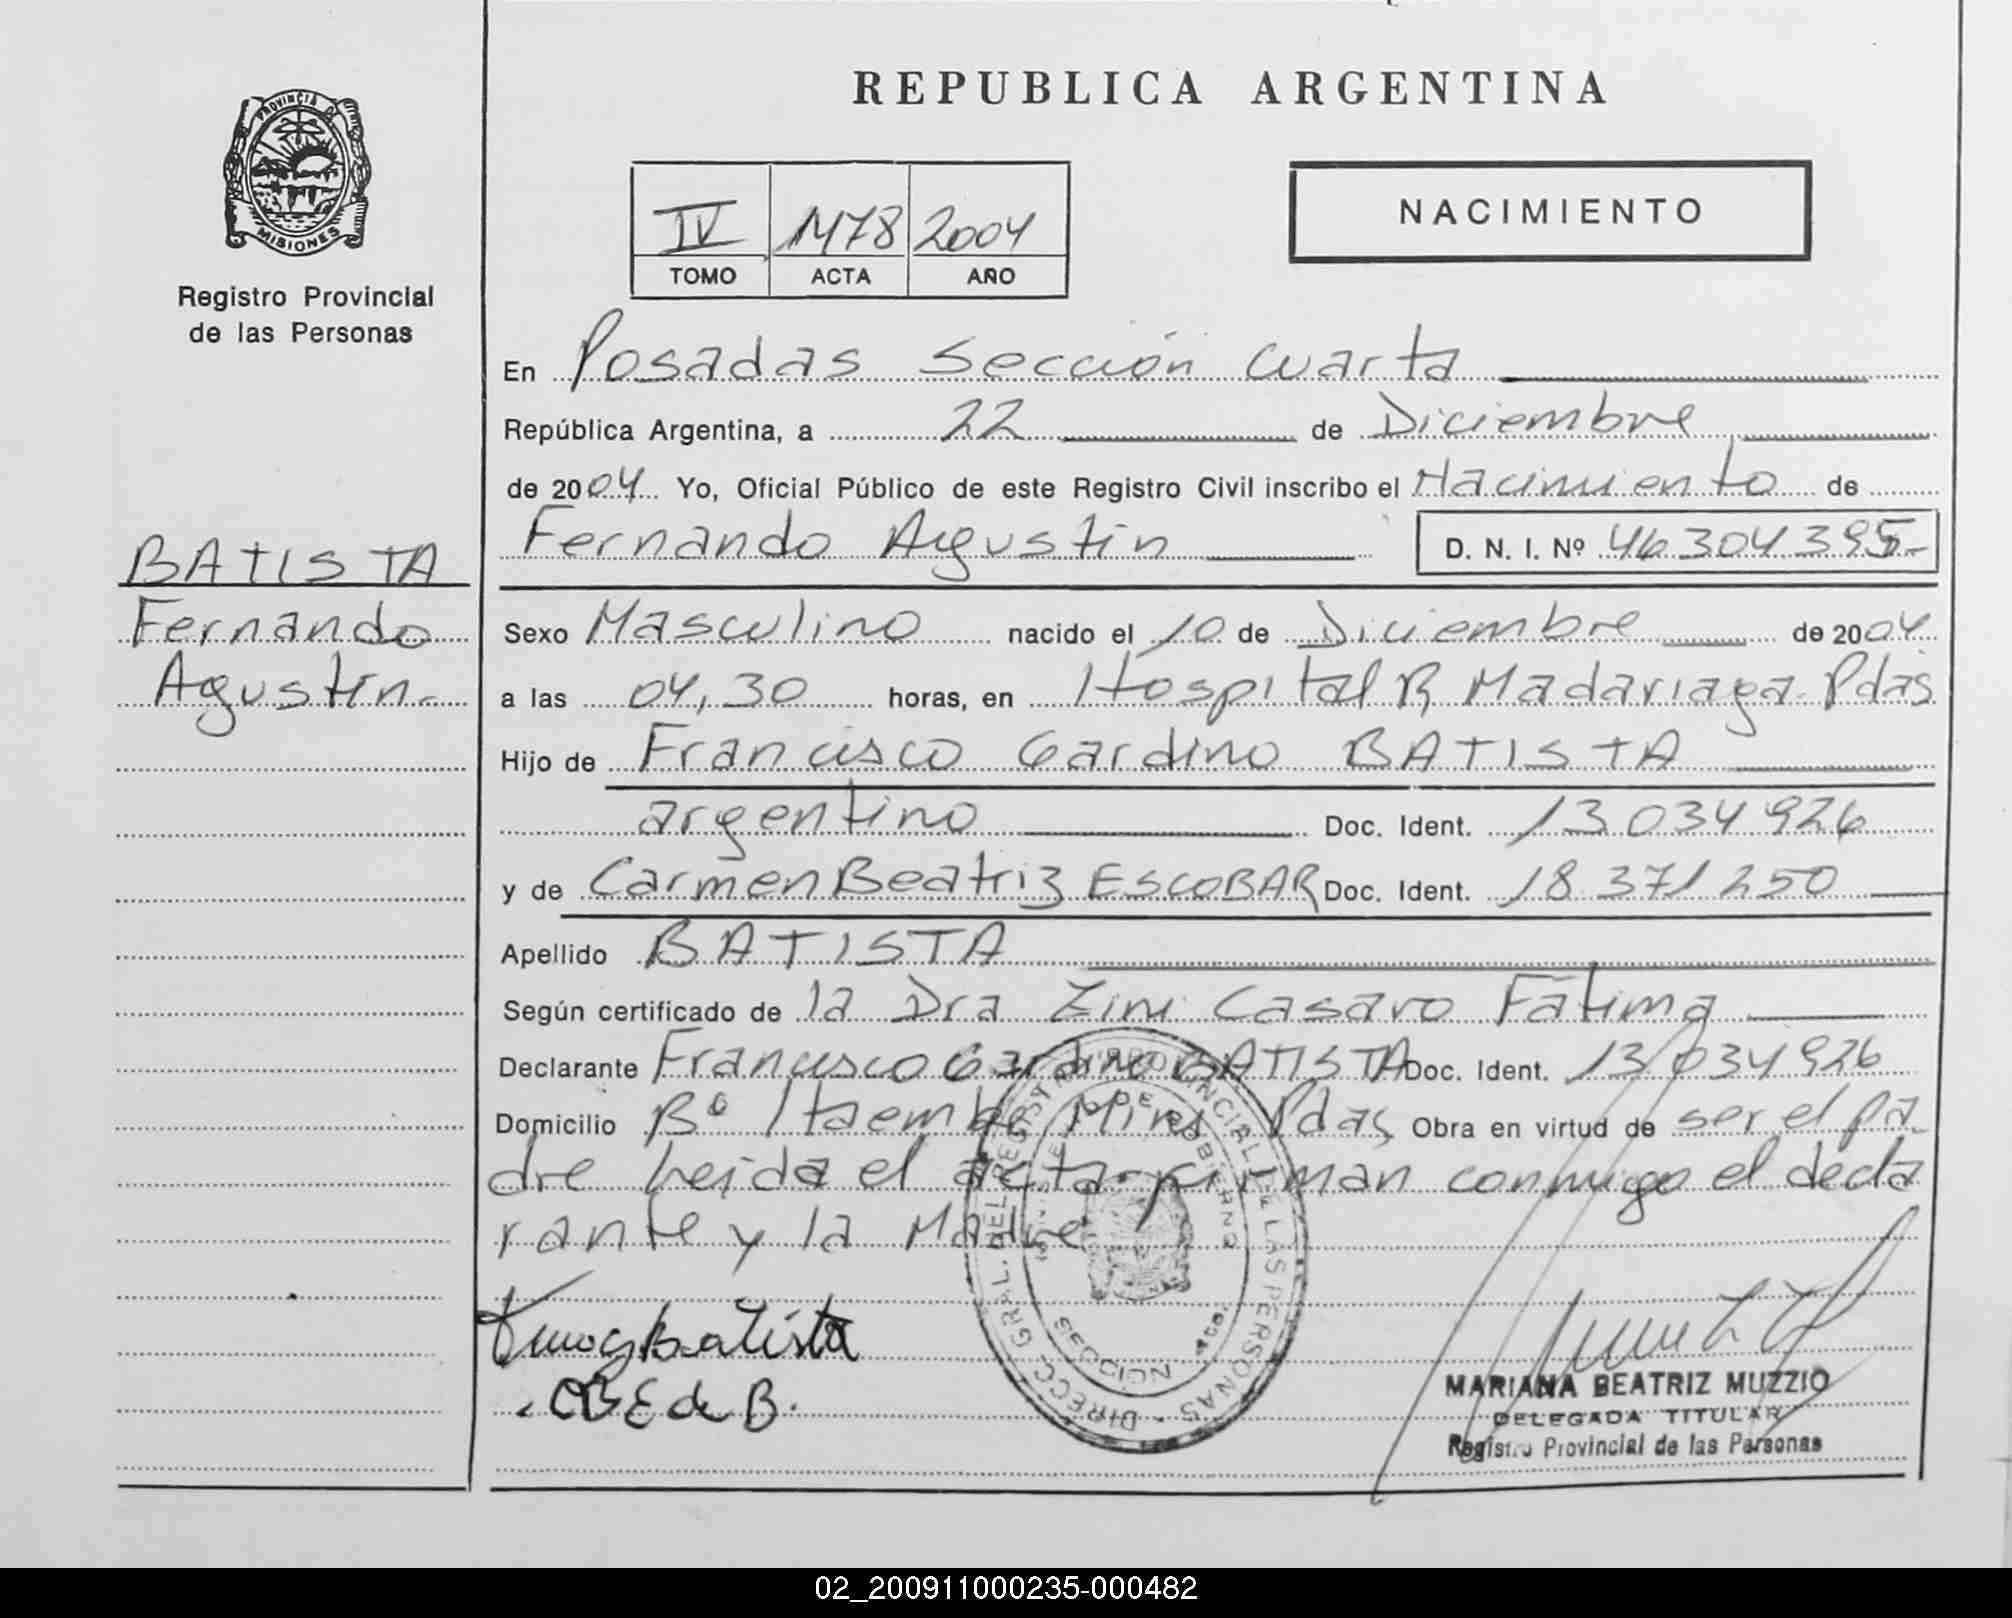 REPUBLICA ARGENTINA
PROVINCIA DE
MISIONES
Registro Provincial
de las Personas
NACIMIENTO
IV 1178 2004
TOMO ACTA AÑO
En Posadas Sección Cuarta
República Argentina, a 22 de Diciembre
de 2004 Yo, Oficial Público de este Registro Civil inscribo el Nacimiento de
Fernando Agustin D. N. I. Nº 46304395-
BATISTA
Fernando
Agustin.-
Sexo Masculino nacido el 10 de Diciembre de 2004
a las 04,30 horas, en Hospital R Madariaga-Pdas
Hijo de Francisco Gardino BATISTA
argentino Doc. Ident. 13034926
y de Carmen Beatriz ESCOBAR Doc. Ident. 18.371250
Apellido BATISTA
Según certificado de la Dra Zini Casaro Fátima
Declarante Francisco Gardino BATISTA Doc. Ident. 13034926
Domicilio Bº Itaembe Mini Pdas Obra en virtud de ser el pa-
dre leida el acta firman conmigo el decla
rante y la Madre
Batista
CBE de B.
DIRECC. GRAL. DEL REGISTRO PROVINCIAL DE LAS PERSONAS
MARIANA BEATRIZ MUZZIO
DELEGADA TITULAR
Registro Provincial de las Personas
02_200911000235-000482